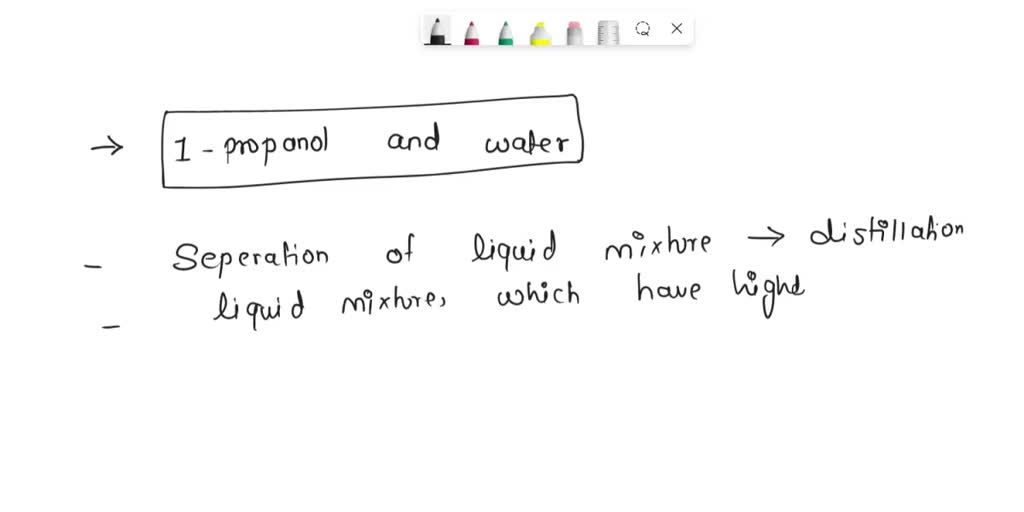 → 1 - propanol and water
- Seperation of liquid mixture → distillation
- liquid mixture, which have highe